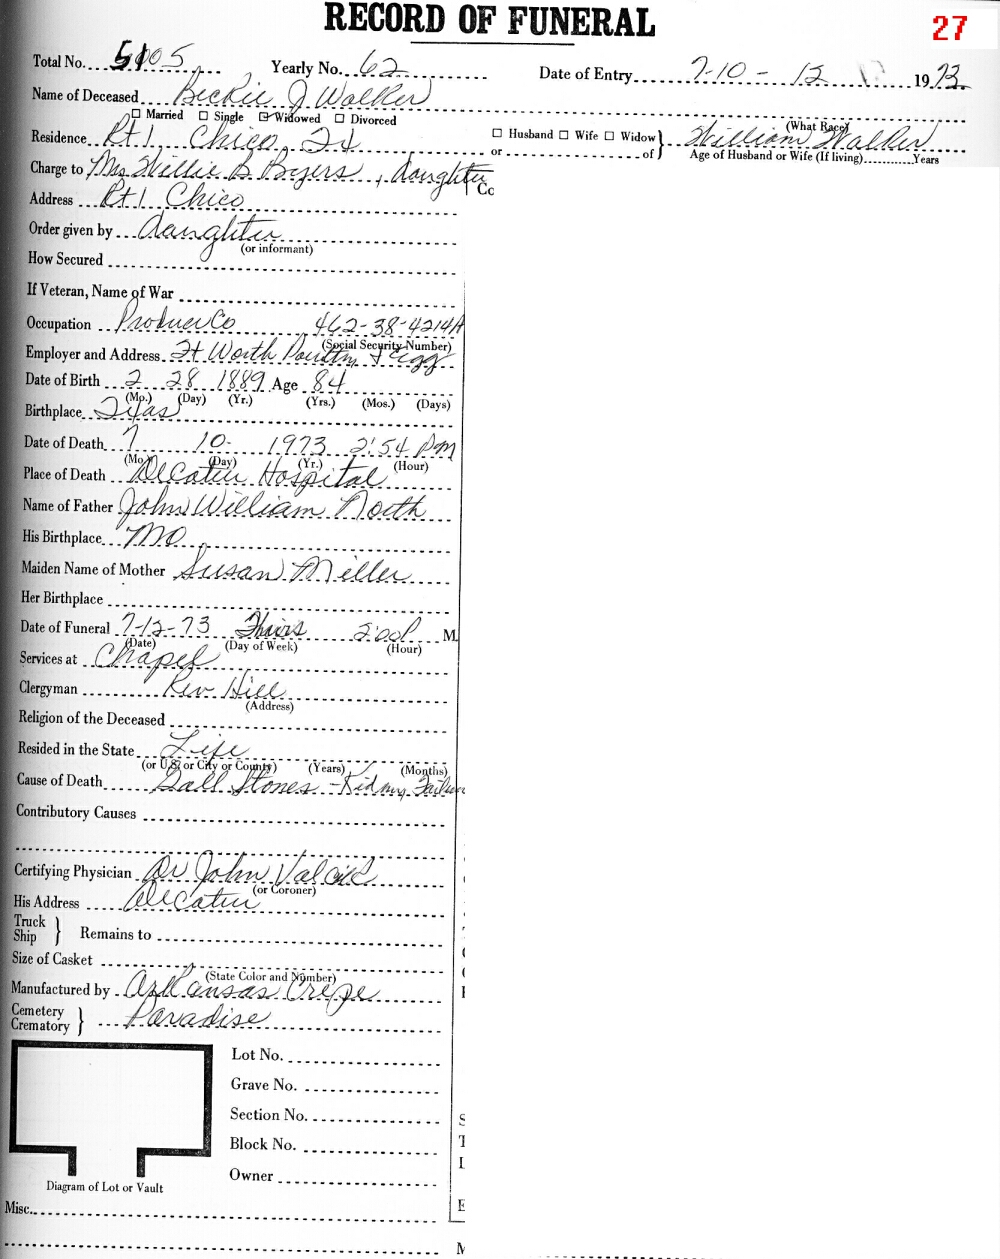 RECORD OF FUNERAL
27
Total No. 5105 Yearly No. 62 Date of Entry 7-10-12 1973
Name of Deceased Beckie J Walker
☐ Married ☐ Single ☑ Widowed ☐ Divorced (What Race)
Residence Rt 1 Chico, Tx ☐ Husband ☐ Wife ☐ Widow } William Walker
or of Age of Husband or Wife (If living) Years
Charge to Mrs Willie B Byers, daughter
Cc
Address Rt 1 Chico
Order given by daughter
(or informant)
How Secured
If Veteran, Name of War
Occupation Produce Co 462-38-4214A
(Social Security Number)
Employer and Address Ft Worth Poultry & Egg
Date of Birth 2 28 1889 Age 84
(Mo.) (Day) (Yr.) (Yrs.) (Mos.) (Days)
Birthplace Texas
Date of Death 7 10- 1973 2:54 Pm
(Mo.) (Day) (Yr.) (Hour)
Place of Death Decatur Hospital
Name of Father John William North
His Birthplace MO
Maiden Name of Mother Susan Miller
Her Birthplace
Date of Funeral 7-12-73 Thurs 2:00 P M.
(Date) (Day of Week) (Hour)
Services at Chapel
Clergyman Rev Hill
(Address)
Religion of the Deceased
Resided in the State Life
(or U.S. or City or County) (Years) (Months)
Cause of Death Gall Stones - Kidney Failure
Contributory Causes
Certifying Physician Dr John
(or Coroner)
His Address Decatur
Truck
Ship } Remains to
Size of Casket
(State Color and Number)
Manufactured by Arkansas Crepe
Cemetery
Crematory } Paradise
Lot No.
Grave No.
Section No.
Block No.
Owner
Diagram of Lot or Vault
Misc.